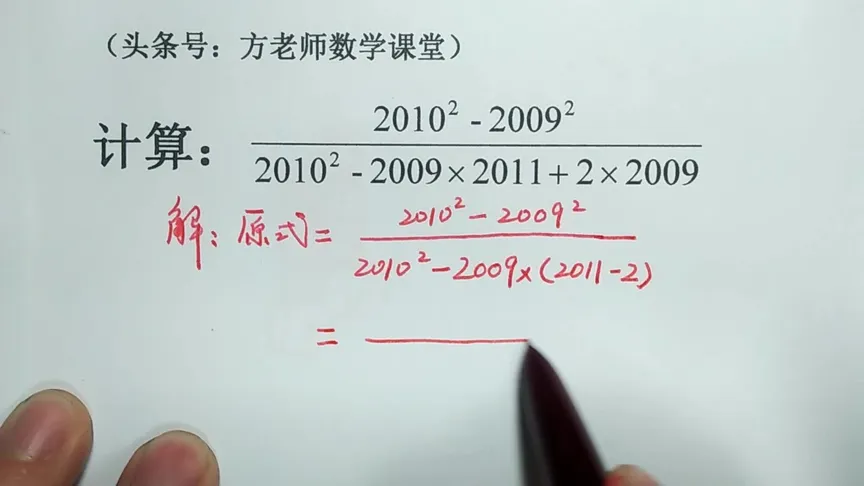 （头条号：方老师数学课堂）
计算： (2010² - 2009²) / (2010² - 2009×2011+2×2009)
解：原式= (2010²-2009²) / (2010²-2009×(2011-2))
=